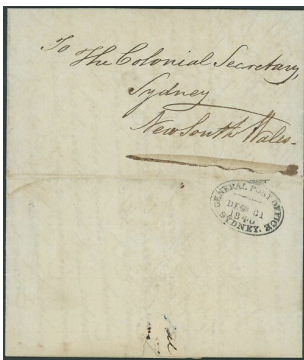 To
The Colonial Secretary,
Sydney
New South Wales-
GENERAL POST OFFICE
DE 01
1840
SYDNEY.